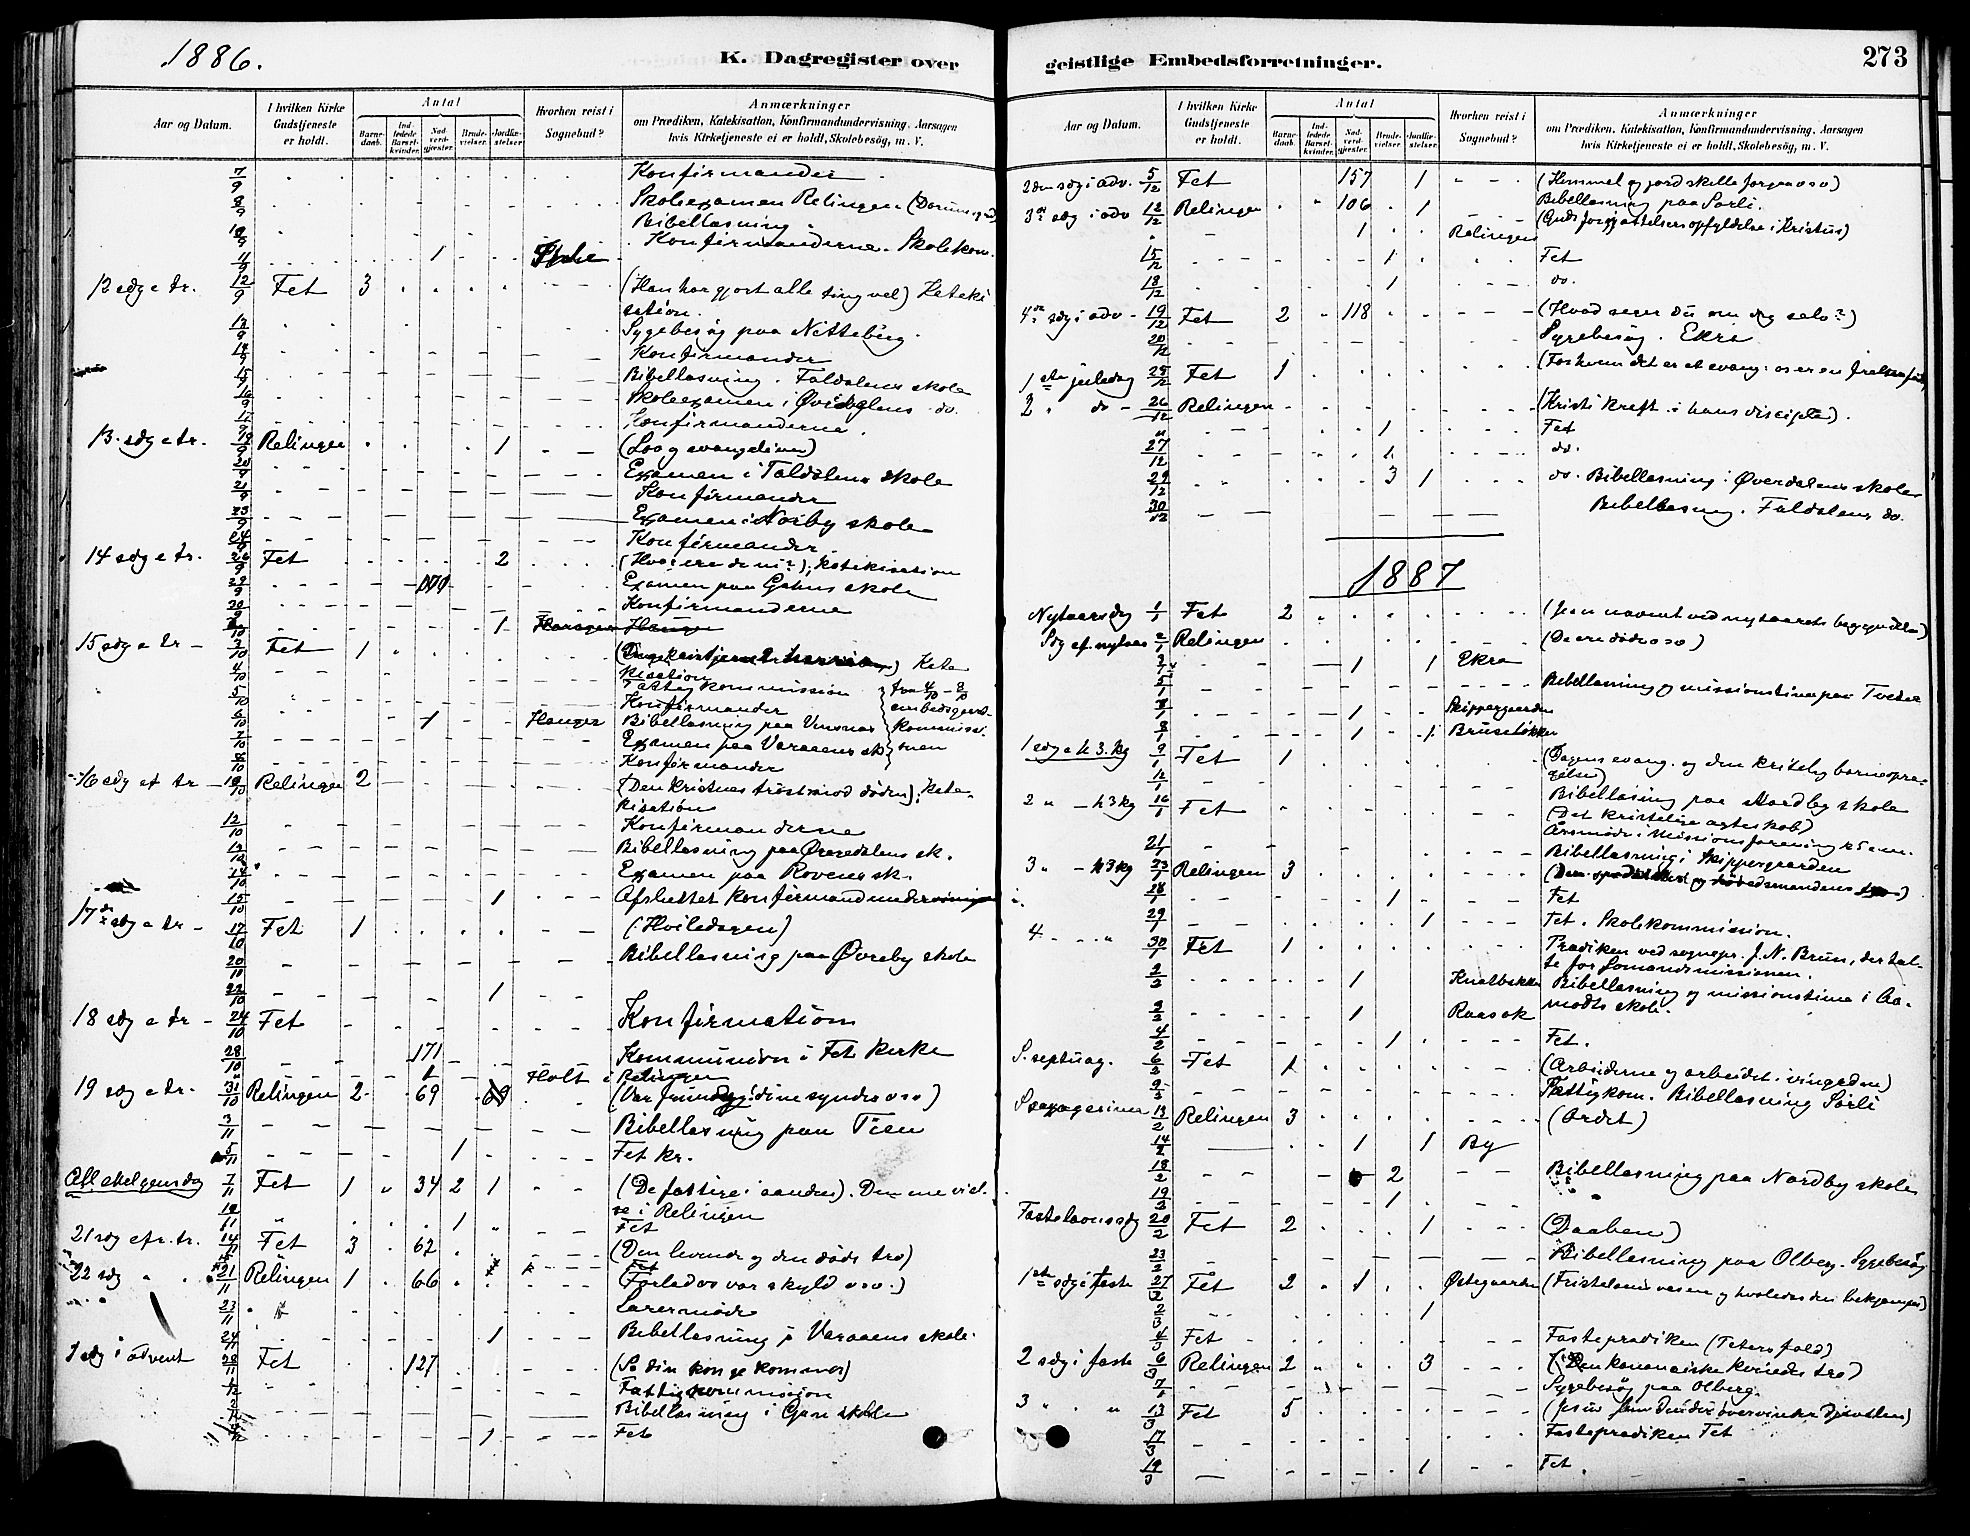 1886.
K. Dagregister over
Aar og Datum.
I hvilken Kirke Gudstjeneste er holdt.
Antal
Barnedaab.
Indledede Barselkvinder.
Nadverdgjester.
Brudevielser.
Jordfæstelser.
Hvorhen reist i Sognebud?
Anmærkninger
om Prædiken, Katekisation, Konfirmandundervisning. Aarsagen
hvis Kirketjeneste ei er holdt, Skolebesøg, m. V.
7/9 Konfirmander
8/9 Skoleexamen Relingen
Bibellæsning
10/9 Konfirmanderne. Skolekom.
11/9 1
12 sdg e tr. 12/9 Fet 3 (Han har gjort alle ting vel) Kateki
sation.
13/9 Sygebesøg paa Nitteberg.
14/9 Konfirmander
15/9 Bibellæsning. Faldalens skole
16/9 Skoleexamen i Øverdalens do.
17/9 Konfirmanderne.
13. sdg e tr. 19/9 Relingen 1 (Lov og evangelium)
20/9 Examen i Faldalens skole
21/9 Konfirmander
23/9 Examen i Norby skole
24/9 Konfirmander
14 sdg e tr. 26/9 Fet 2 (Hvor ere de ni?), katekisation
29/9 Examen paa Gahns skole
30/9 Konfirmanderne
15 sdg e tr - 3/10 Fet 1 Kate
kisation
4/10 Fattigkommission fra 4/10 - 8/10
5/10 Konfirmander embedsgaard-
6/10 1 Hauger Bibellæsning paa kommissi-
7/10 Examen paa Varaaens sk. onen
8/10 Konfirmander
16 sdg ef tr - 10/10 Relingen 2 (Den kristnes trøst mod døden), kate-
kisation
12/10 Konfirmanderne
13/10 Bibellæsning paa Øveredalens sk.
14/10 Examen paa Rovens sk.
15/10 1 Afsluttet konfirmandundervisningen
17de sdg e tr - 17/10 Fet 1 (Hviledagen)
20/10 Bibellæsning paa Øvreby skole
22/10 1
18 sdg e tr - 24/10 Fet Konfirmation
28/10 171 Kommunion i Fet kirke
1 Holt i Relingen
19 sdg e tr. 31/10 Relingen 2 69 (Vær frimodig! dine synder osv)
3/11 Bibellæsning paa Tien
5/11 1 Fet kr.
All ehelgensdag 7/11 Fet 1 34 2 1 (De fattige i aanden). Den ene viel-
se i Relingen
1 Fet
21 sdg efr. tr. 14/11 Fet 3 62 (Den levende og den døde tro)
22 sdg 21/11 Relingen 1 66 (Forlad os vor skyld osv.)
23/11 Lærermøde
24/11 1 Bibellæsning i Varaaens skole.
1 sdg i advent 28/11 Fet 127 (Se din konge kommer)
1/12 Fattigkommission
2/12 Bibellæsning i Gan skole
1 Fet
geistlige Embedsforretninger.
273
Aar og Datum.
I hvilken Kirke Gudstjeneste er holdt.
Antal
Barnedaab.
Indledede Barselkvinder.
Nadverdgjester.
Brudevielser.
Jordfæstelser.
Hvorhen reist i Sognebud?
Anmærkninger
om Prædiken, Katekisation, Konfirmandundervisning, Aarsagen
hvis Kirketjeneste ei er holdt, Skolebesøg, m. V.
2den sdg i adv. 5/12 Fet 157 1 (Himmel og jord skulle forgaa osv)
Bibellæsning paa Sørli.
3die sdg i adv 12/12 Relingen 106 1 (Guds forjættelsers opfyldelse i Kristus)
1 Relingen
15/12 1 Fet
18/12 1 do.
4de sdg i adv - 19/12 Fet 2 118 (Hvad siger du om dig selv?)
20/12 Sygebesøg. Ekre
1ste juledag 25/12 Fet 1
2 " do - 26/12 Relingen (Kristi kraft i hans disciple).
" 1 Fet
27/12 1 do.
29/12 3 1 do. Bibellæsning i Øverdalens skole
30/12 Bibellæsning. Faldalens do.
1887
Nytaarsdag 1/1 Fet 2 (Jesu navnet ved nytaarets begyndelse)
Sdg ef. nytaar 2/1 Relingen (De ere døde osv)
3/1 1 1 Ekra
5/1 Bibellæsning og missionstime paa Tveter
1 Skippergaarden
8/1 1 1 Brusetøkken
1 sdg e h 3. kg 9/1 Fet 1 (Dagens evang. og den kristelig barneopdra-
gelse)
12/1 Bibellæsning paa Nordby skole
2 " - h3kg 16/1 Fet (Det kristelige ægteskab)
Årsmøde i Missionsforening k5 em.
21/1 Bibellæsning i Skippergaarden
3 " - h3kg 23/1 Relingen 3 (Den spedalske og høvedsmandens tro)
28/1 1 Fet
29/1 1 Fet. Skolekommission.
4 - - " 30/1 Fet 1 Prædiken ved sognepr. J. N. Brun, der tal-
te for Sømandsmissionen.
2/2 1 Knatbakken Bibellæsning og missionstime i Aa-
modts skole.
1 Raasok
4/2 1 Fet.
S. septuag. 6/2 Fet 1 (Arbeiderne og arbeidet i vingården)
9/2 Fattigkom. Bibellæsning Sørli
Sexagesima 13/2 Relingen 3 (Ordet)
14/2 1 1 By
18/2 2 Bibellæsning paa Nordby skole
19/2 1
Fastelavnssdg 20/2 Fet 2 1 (Daaben)
23/2 Bibellæsning paa Olberg. Sygebesøg
1ste sdg i faste 27/2 Fet 2 1 Østegaarden (Fristelsens væsen og hvorledes den bekjæmpes)
2/3 1
4/3 Fet Fasteprædiken (Peters fald)
2 sdg i faste 6/3 Relingen 2 3 (Den kananæiske kvindes tro)
7/3 Sygebesøg paa Olberg.
3 " " 13/3 Fet 5
17/3 Fasteprædiken Fet
19/3 1 Fet.